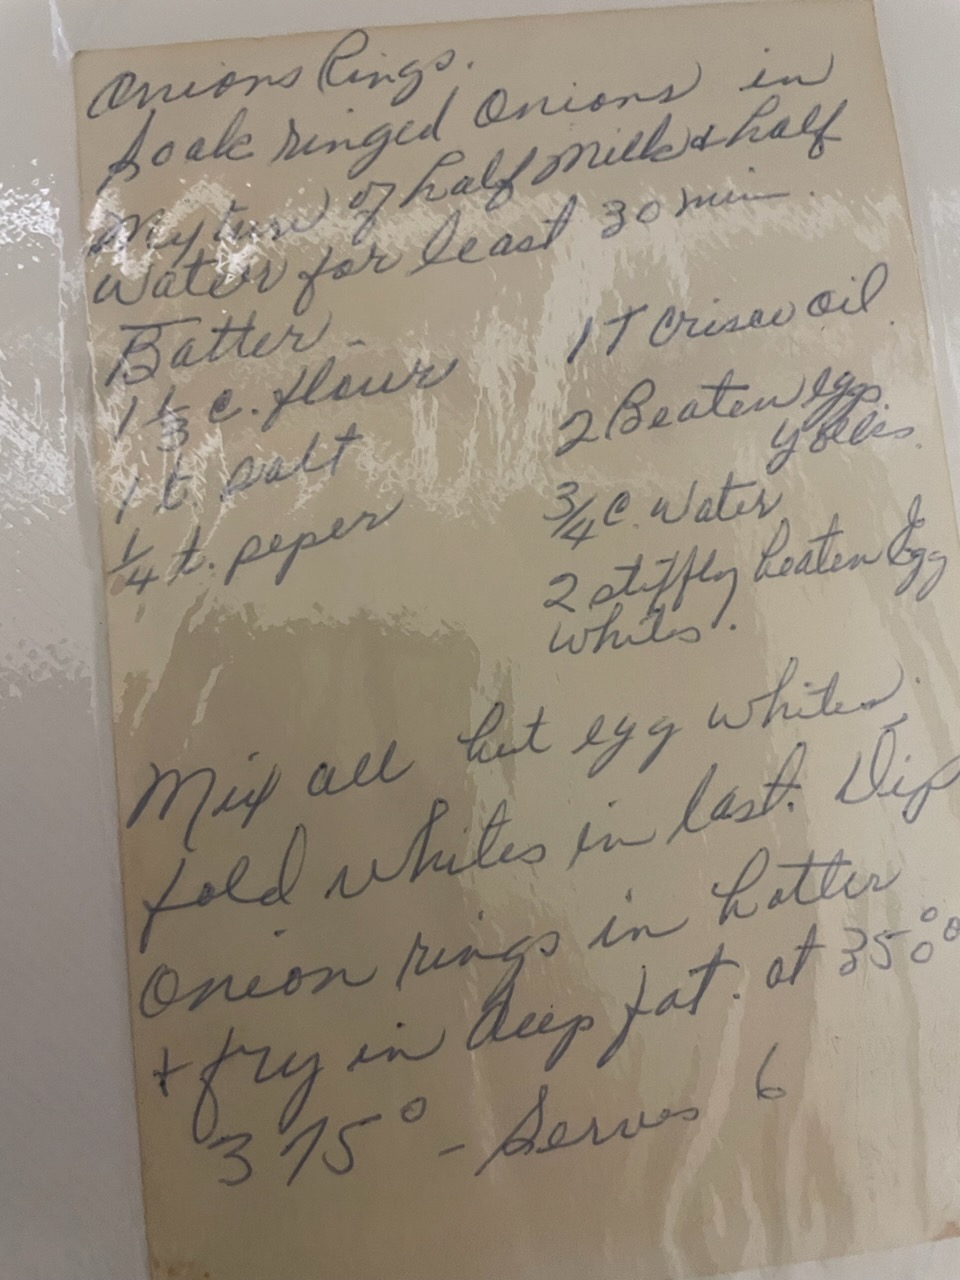 Onions Rings.
Soak ringed Onions in
Myture of half Milk & half
Water for least 30 min.
Batter -
1 1/3 c. flour
1 t. salt
1/4 t. peper
1 T Crisco oil
2 Beaten egg
yolks.
3/4 c. Water
2 stiffly beaten Egg
whites.
Mix all but egg whites,
fold whites in last. Dip
Onion rings in batter
+ fry in deep fat. at 350°
375° - Serves 6